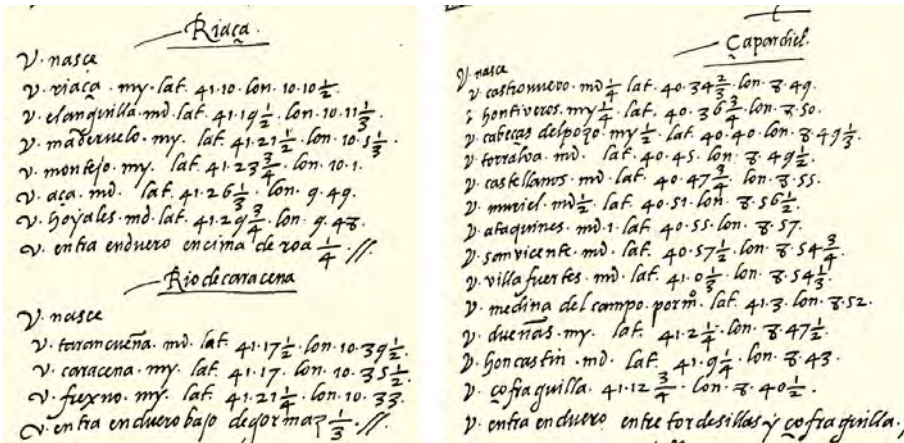 Riaça.
V. nasce
V. riaça. my. lat. 41.10. lon. 10.10 1/2
V. elanquilla. md. lat. 41.19 1/2. lon. 10.11 1/3.
V. maderuelo. my. lat. 41.21 1/2. lon. 10.5 1/3.
V. montejo. my. lat. 41.23 3/4. lon. 10.1.
V. aça. md. lat. 41.26 1/3. lon. 9.49.
V. hoyales. md. lat. 41.29 3/4. lon. 9.48.
V. entra enduero encima de roa 1/4. //.
Rio de caracena
V. nasce
V. tarancueña. md. lat. 41.17 1/2. lon. 10.39 1/2.
V. caracena. my. lat. 41.17. lon. 10.35 1/2.
V. frexno. my. lat. 41.21 1/4. lon. 10.33.
V. entra enduero bajo degormaz 1/3. //.
Çapardiel.
V. nasce
V. castronuevo. md 1/4 lat. 40.34 2/3 lon. 8.49.
hontiveros. my 1/4 lat. 40.36 3/4 lon. 8.50.
V. cabeças delpoço. my 1/2 lat. 40.40 lon. 8.49 1/3
V. torralva. md. lat. 40.45. lon. 8.49 1/2.
V. castellanos. md lat. 40.47 3/4. lon. 8.55.
V. muriel. md 1/2 lat. 40.51. lon. 8.56 1/2.
V. ataquines. md. 1. lat. 40.55. lon. 8.57.
V. san vicente. md. lat. 40.57 1/2. lon. 8.54 3/4
V. villa fuertes. md. lat. 41.0 1/3. lon. 8.54 1/3.
V. medina del campo. por mº. lat. 41.3. lon. 8.52.
V. dueñas. my. lat. 41.2 1/4. lon. 8.47 1/2.
V. honcastin. md. lat. 41.9 1/4. lon. 8.43.
V. çofraguilla. 41.12 3/4. lon. 8.40 1/2.
V. entra enduero entre tordesillas y çofraguilla.